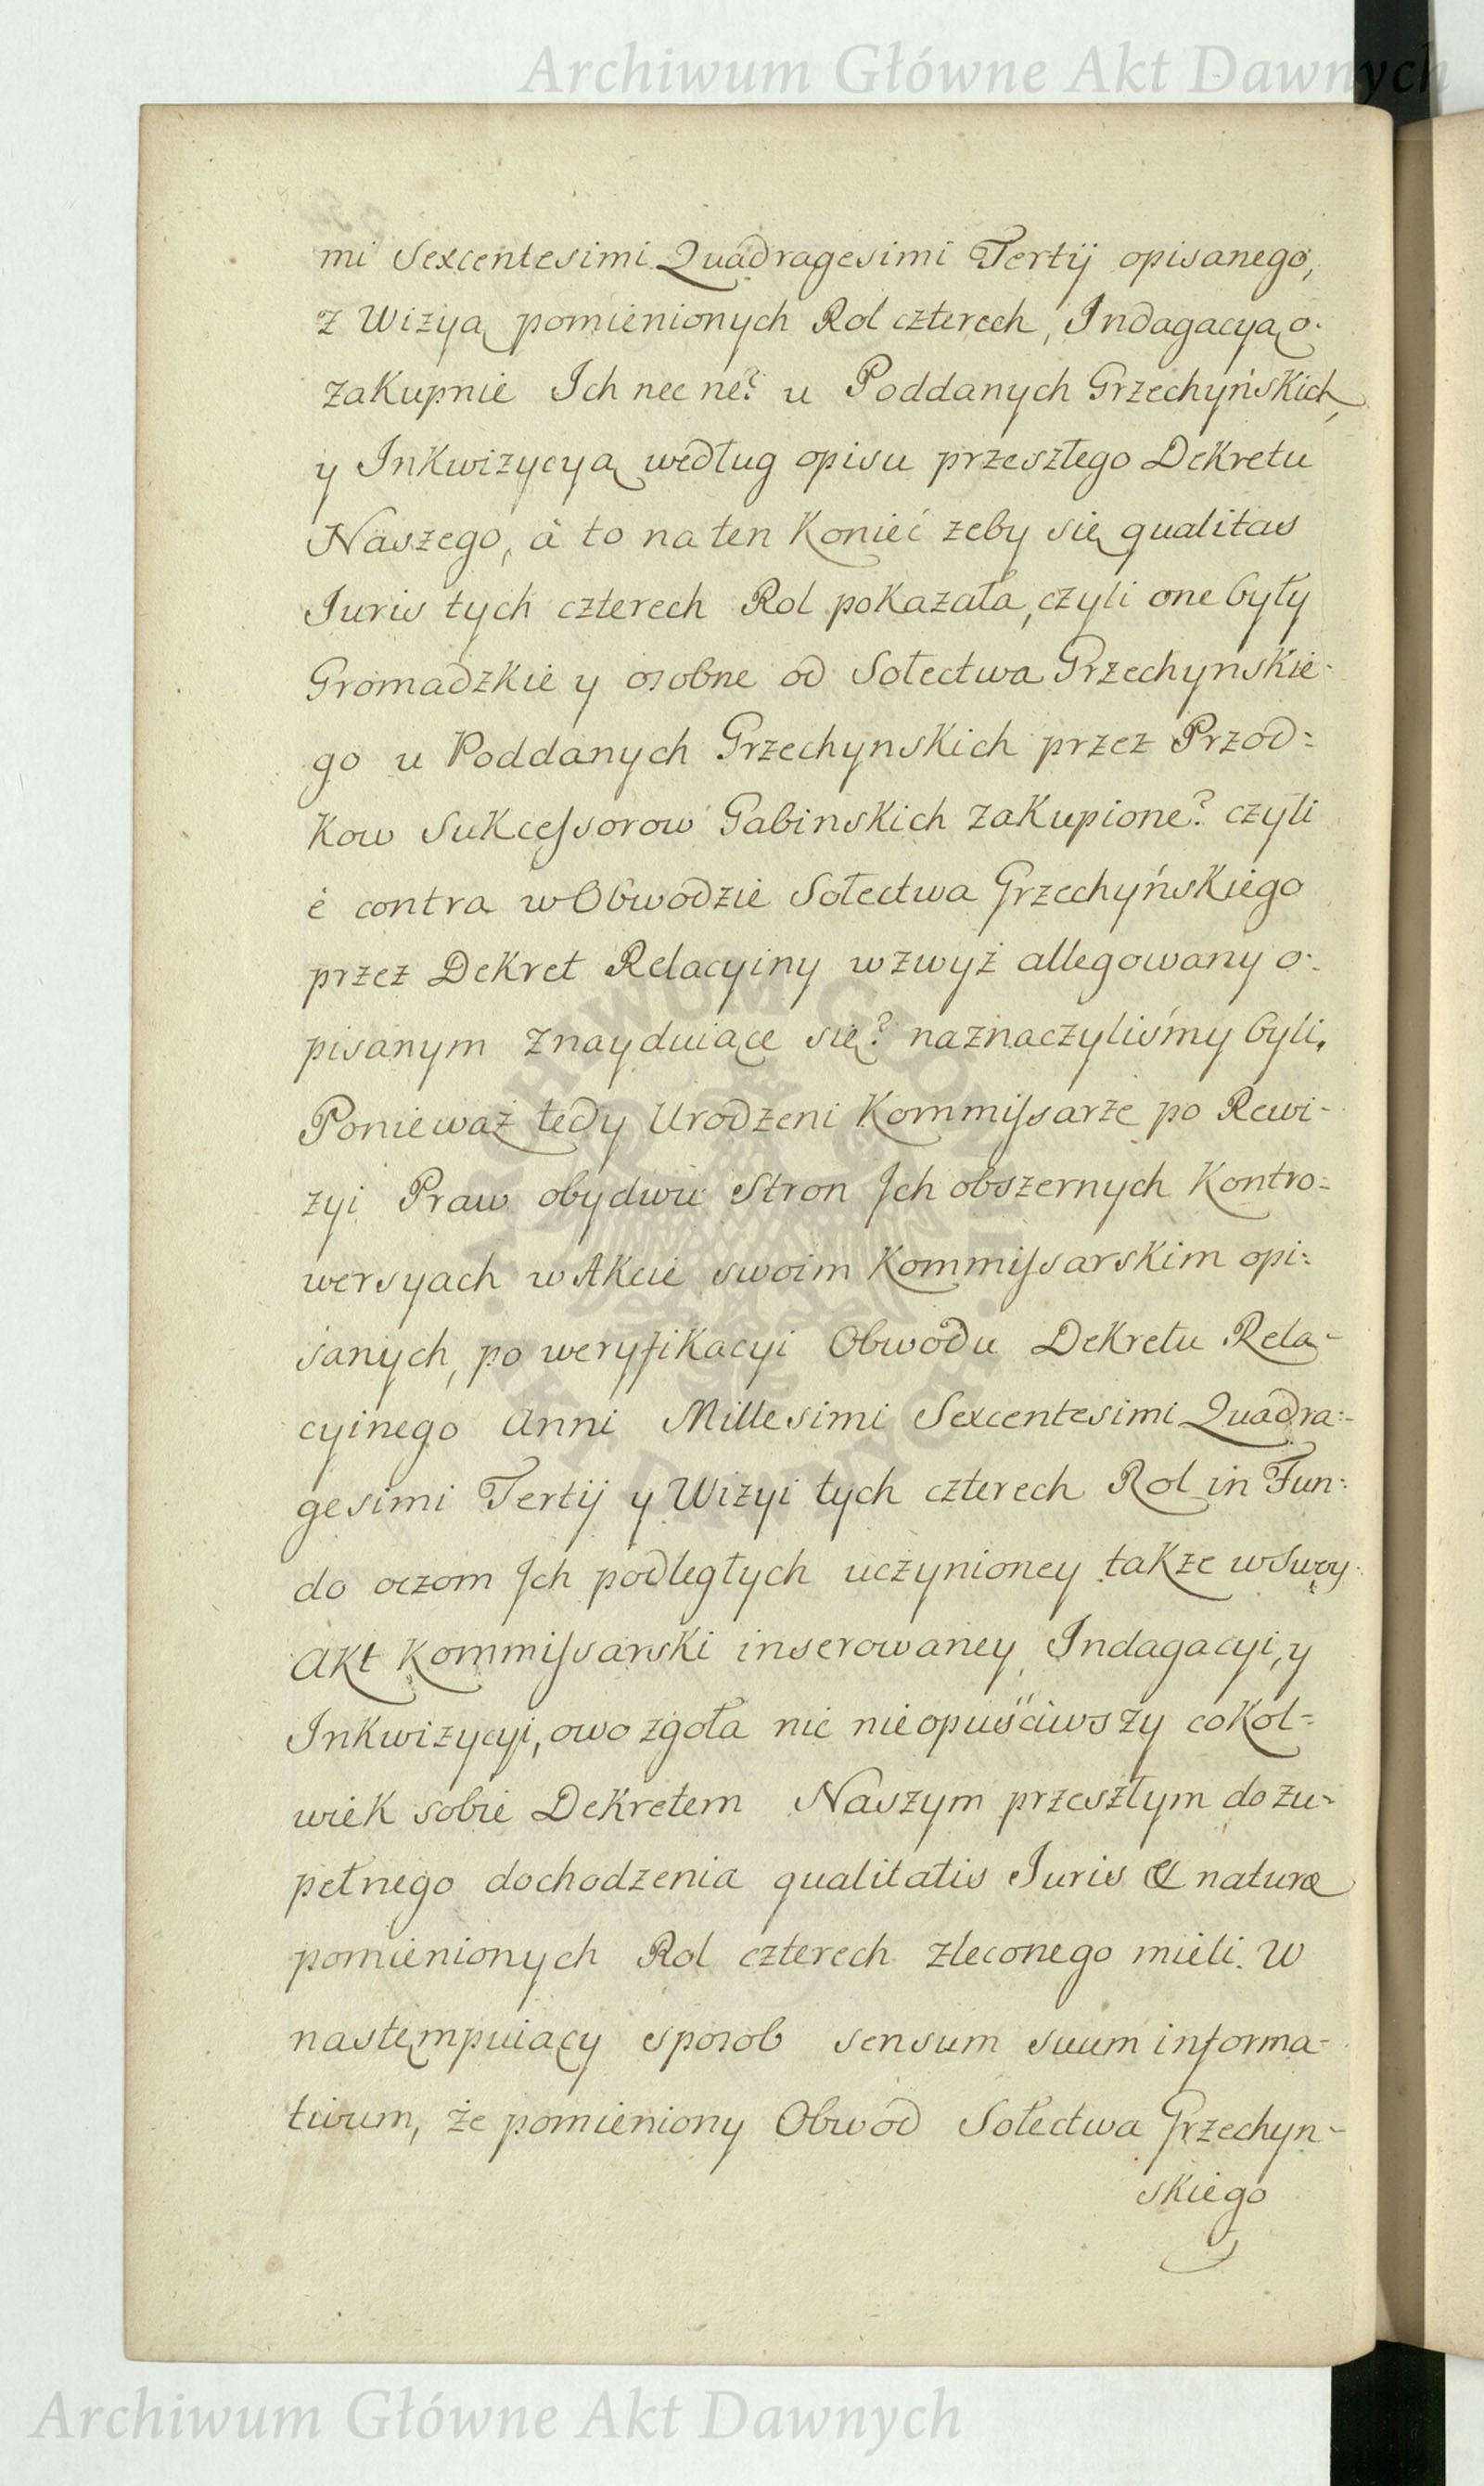 Archiwum Główne Akt Dawnych
mi Sexcentesimi Quadragesimi Tertij opisanego,
z Wizyą pomienionych Rol czterech, Indagacyą o-
zakupnie Ich nec ne? u Poddanych Grzechyńskich,
y Inkwizycyą według opisu przeszłego Dekretu
Naszego, à to na ten Konieć zeby się qualitas
Iuris tych czterech Rol pokazała, czyli one były
Gromadzkie y osobne od Sołectwa Grzechynskie-
go u Poddanych Grzechynskich przez Przod=
kow Sukcessorow Gabinskich zakupione? czyli
è contra w Obwodzie Sołectwa Grzechyńskiego
przez Dekret Relacyiny wzwyż allegowany o-
pisanym znayduiące się? naznaczyliśmy byli.
Ponieważ tedy Urodzeni Kommissarze po Rewi-
zyi Praw obydwu Stron Ich obszernych Kontro=
wersyach w Akcie swoim Kommissarskim opi=
sanych, po weryfikacyi Obwodu Dekretu Rela-
cyinego Anni Millesimi Sexcentesimi Quadra=
gesimi Tertij y Wizyi tych czterech Rol in Fun=
do oczom Ich podległych uczynioney także w Swoy
Akt Kommissarski inserowaney Indagacyi, y
Inkwizycyi, owo zgoła nic nieopuściwszy cokol=
wiek sobie Dekretem Naszym przeszłym do zu-
pełnego dochodzenia qualitatis Iuris & naturæ
pomienionych Rol czterech zleconego mieli. W
nastempuiący sposob sensum suum informa-
tivum, że pomieniony Obwód Sołectwa Grzechyn-
skiego
Archiwum Główne Akt Dawnych